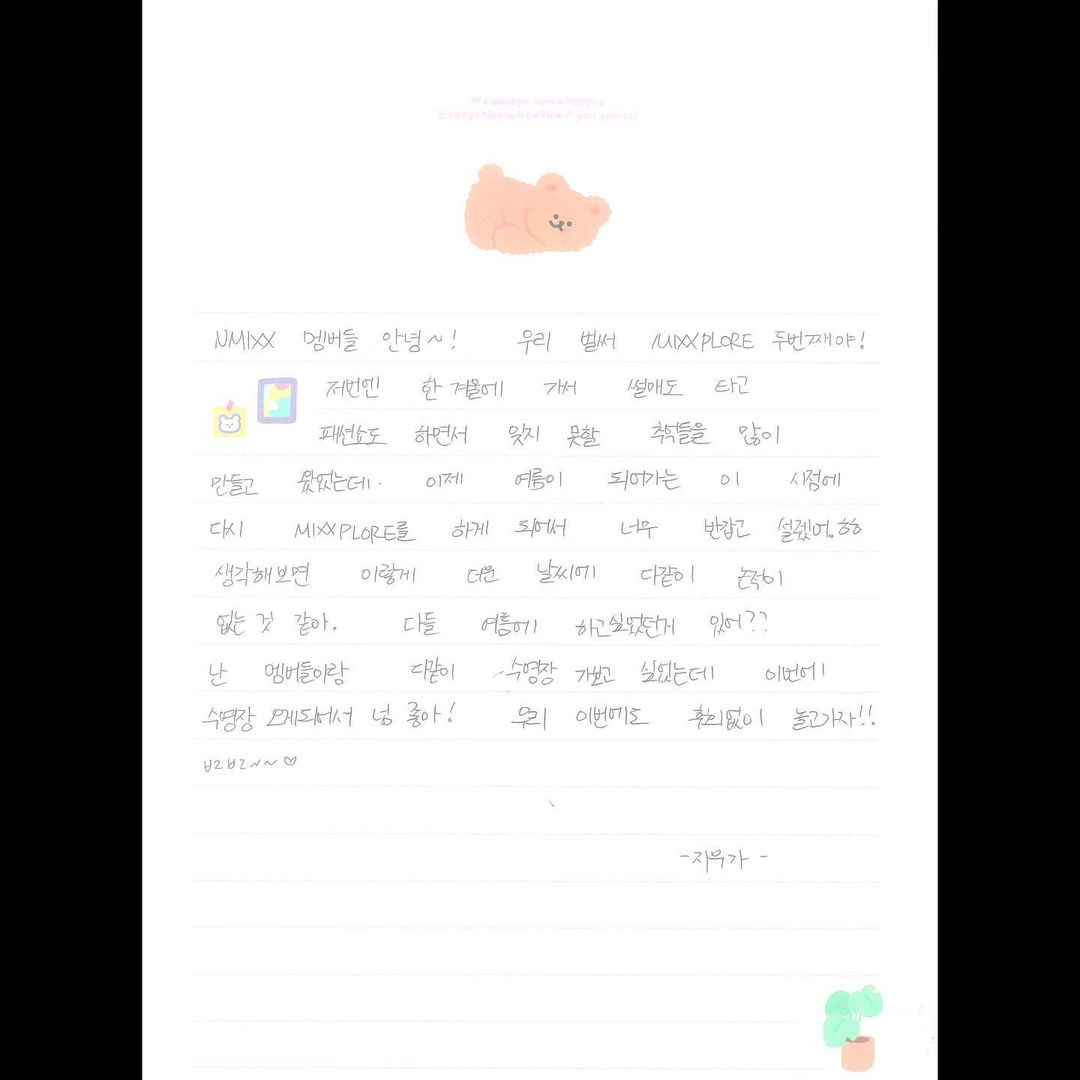 We always dance happy
Everything will be fine if you join us!
NMIXX 멤버들 안녕~! 우리 벌써 MIXXPLORE 두번째야!
저번엔 한 겨울에 가서 썰매도 타고
패션쇼도 하면서 잊지 못할 추억들을 많이
만들고 왔었는데. 이제 여름이 되어가는 이 시점에
다시 MIXXPLORE를 하게 되어서 너무 반갑고 설렜어.ㅎㅎ
생각해보면 이렇게 더운 날씨에 다같이 논적이
없는 것 같아. 다들 여름에 하고싶었던게 있어??
난 멤버들이랑 다같이 수영장 가보고 싶었는데 이번에
수영장 오게되어서 넝 좋아! 우리 이번에도 후회없이 놀고가자!!
ㅂㄹㅂㄹ~~♡
-지우가-